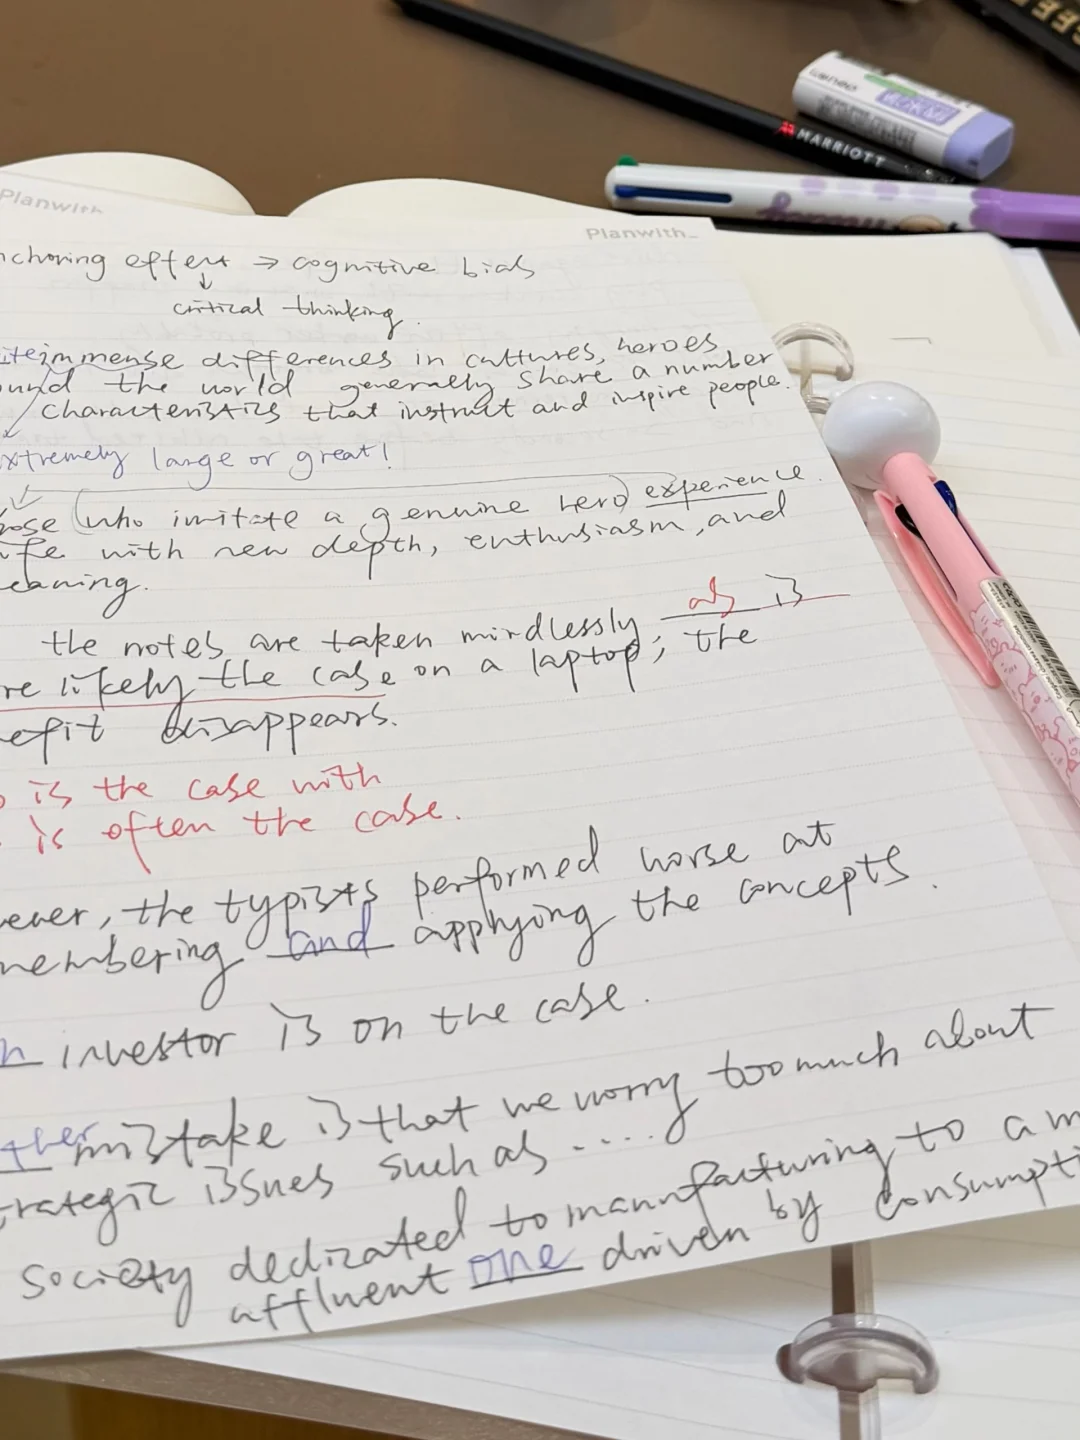 MARRIOTT
Planwith
Planwith_
nchoring effect → cognitive bias
critical thinking.
ite immense differences in cultures, heroes
ound the world generally share a number
characteristics that instruct and inspire people.
xtremely large or great!
hose (who imitate a genuine hero) experience
ife with new depth, enthusiasm, and
eaning.
the notes are taken mindlessly, as is
re likely the case on a laptop, the
nefit disappears.
is the case with
is often the case.
ever, the typists performed worse at
membering and applying the concepts.
n investor is on the case.
ther mistake is that we worry too much about
trategic issues such as .....
society dedicated to manufacturing to a m
affluent one driven by consumpti